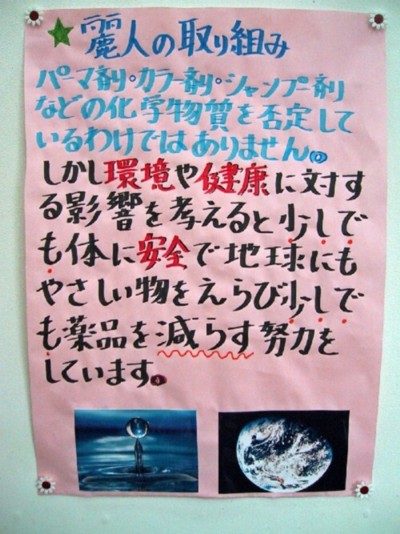 ★麗人の取り組み
パーマ剤・カラー剤・シャンプー剤
などの化学物質を否定して
いるわけではありません。
しかし環境や健康に対す
る影響を考えると少しで
も体に安全で地球にも
やさしい物をえらび少しで
も薬品を減らす努力を
しています。